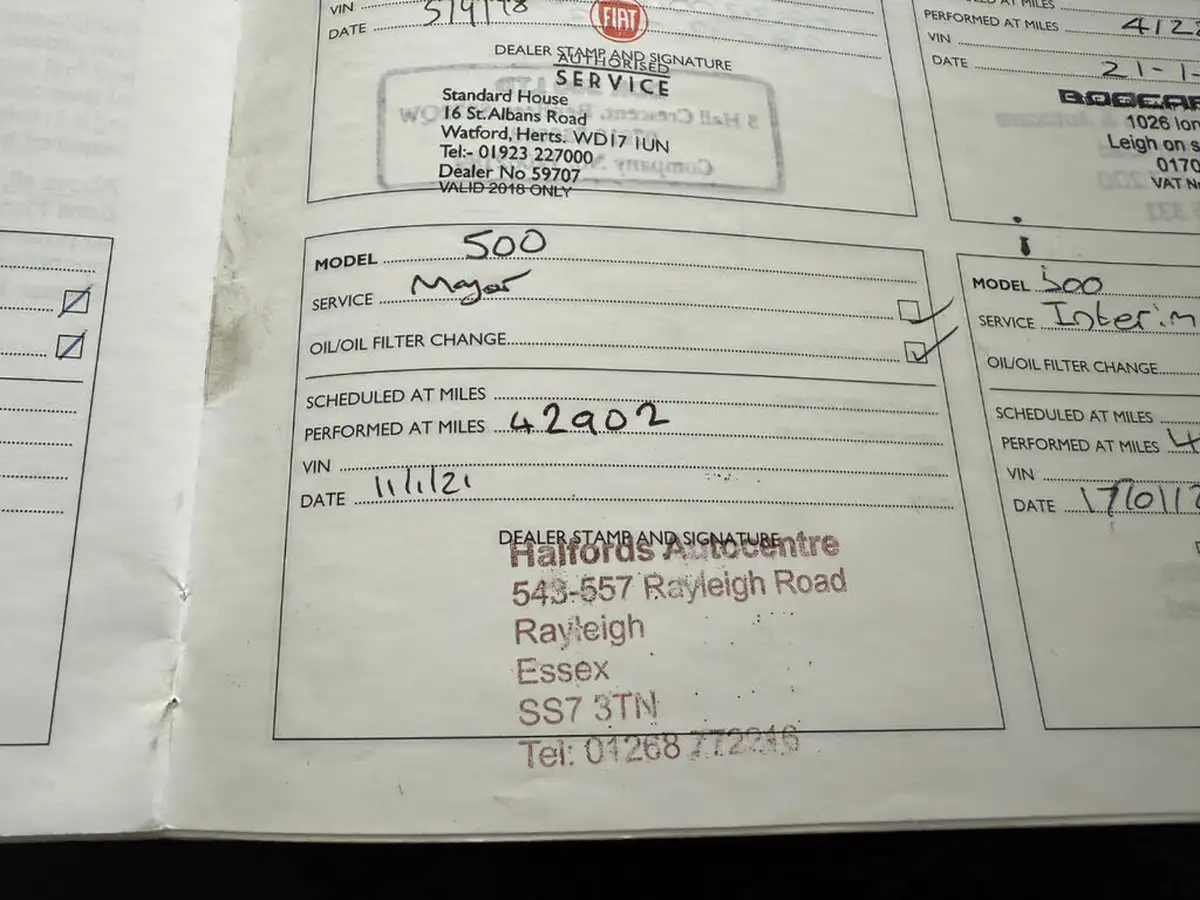 VIN
DATE 5/4/18
FIAT
DEALER STAMP AND SIGNATURE
AUTHORISED
SERVICE
Standard House
16 St.Albans Road
Watford, Herts. WD17 1UN
Tel:- 01923 227000
Dealer No 59707
VALID 2018 ONLY
MODEL 500
SERVICE Major
OIL/OIL FILTER CHANGE
SCHEDULED AT MILES
PERFORMED AT MILES 42902
VIN
DATE 11/1/21
DEALER STAMP AND SIGNATURE
Halfords Autocentre
543-557 Rayleigh Road
Rayleigh
Essex
SS7 3TN
Tel: 01268 772216
AT MILES
PERFORMED AT MILES 412
VIN
DATE 21-1-
1026 lon
Leigh on s
0170
VAT N
MODEL 500
SERVICE Interim
OIL/OIL FILTER CHANGE
SCHEDULED AT MILES
PERFORMED AT MILES 4
VIN
DATE 17/01/2